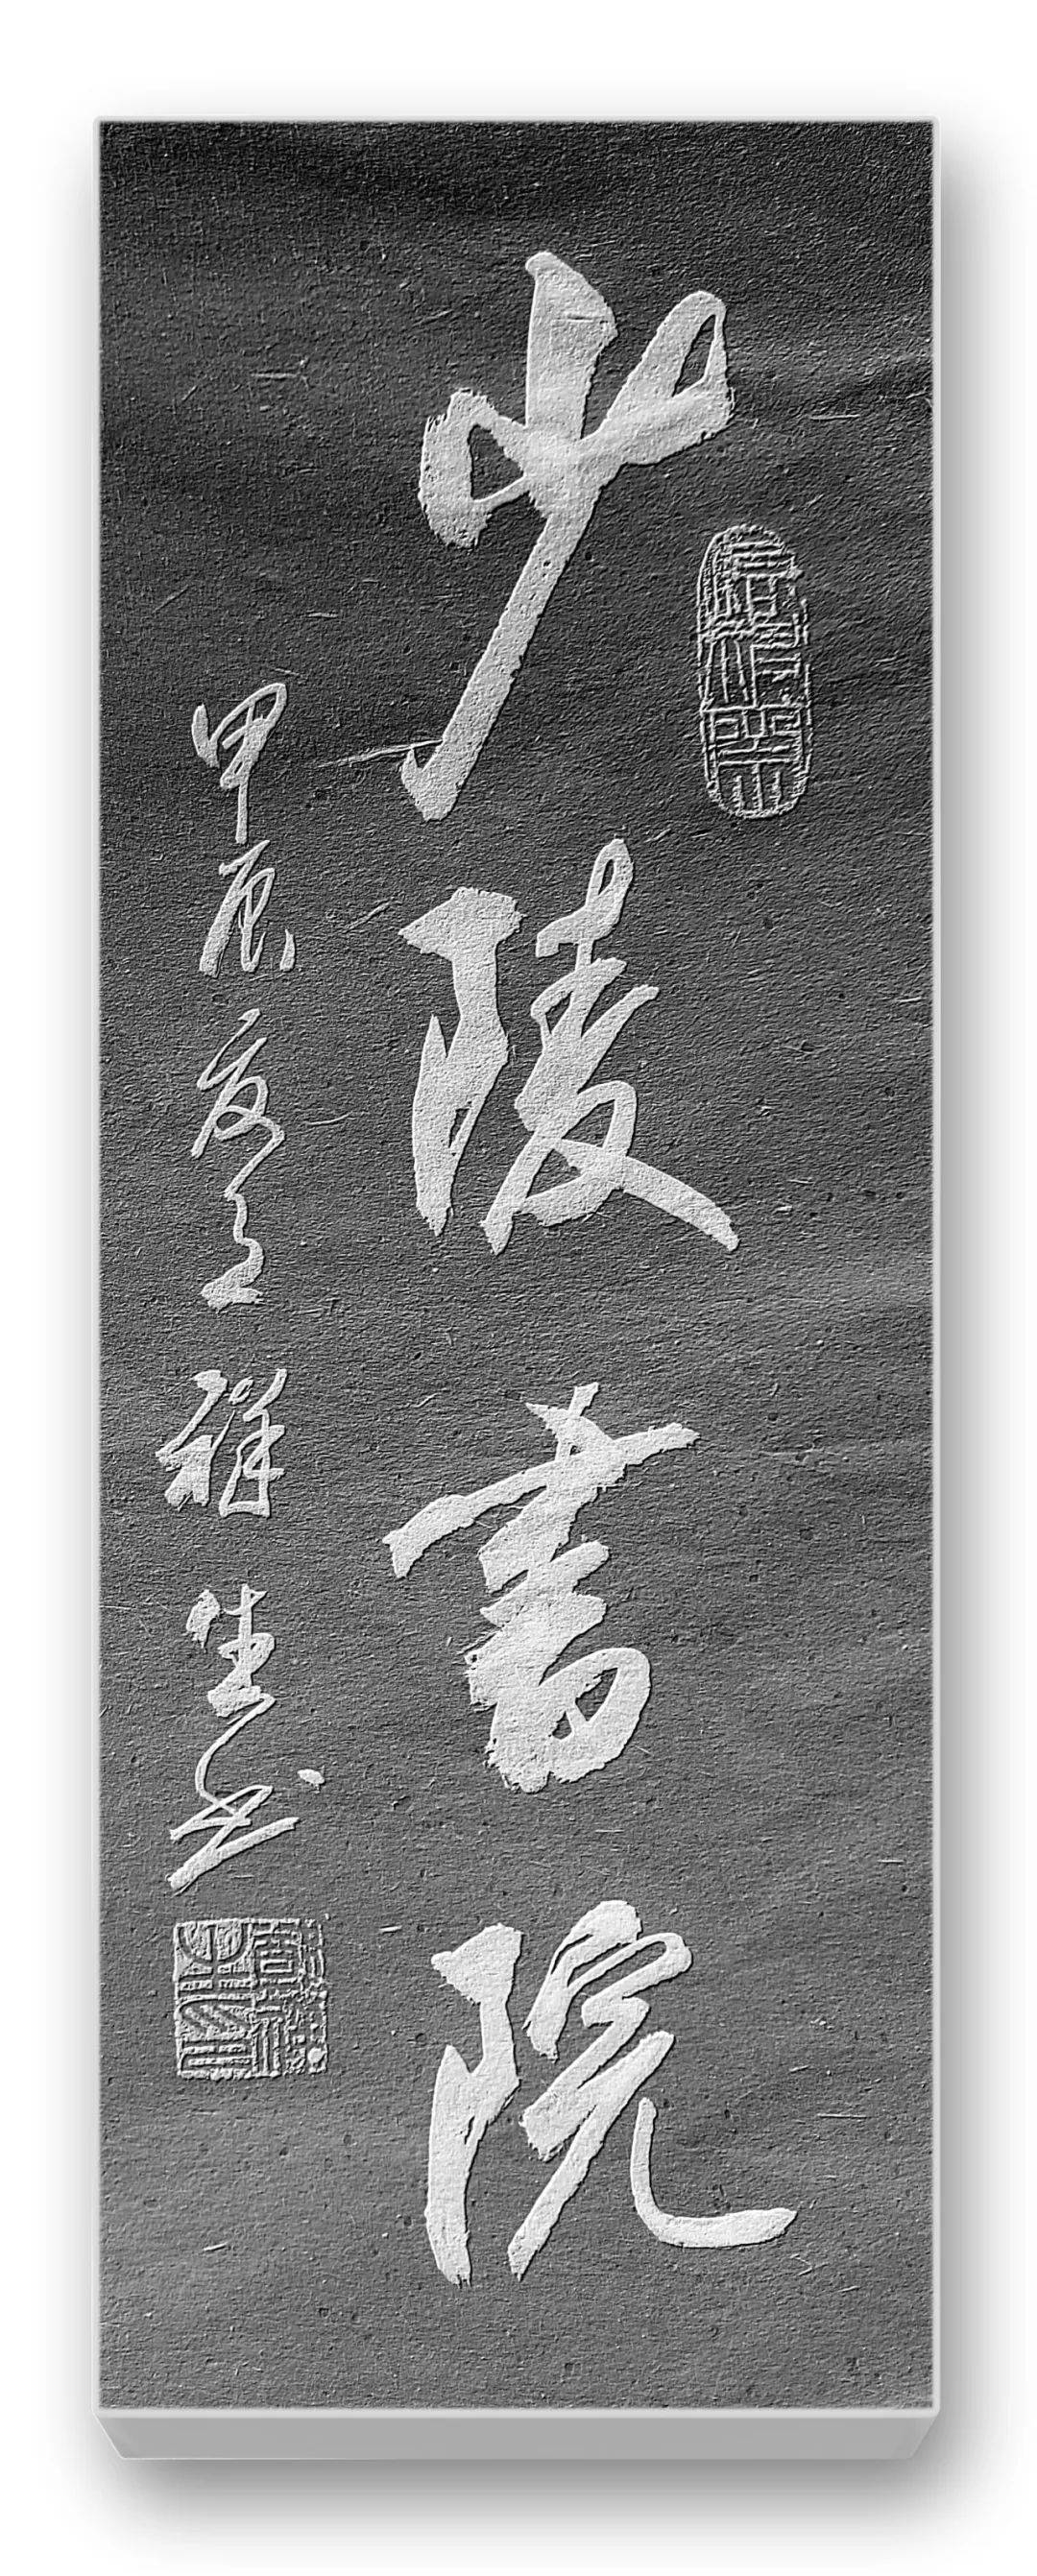 少陵書院
甲辰夏 祥生書